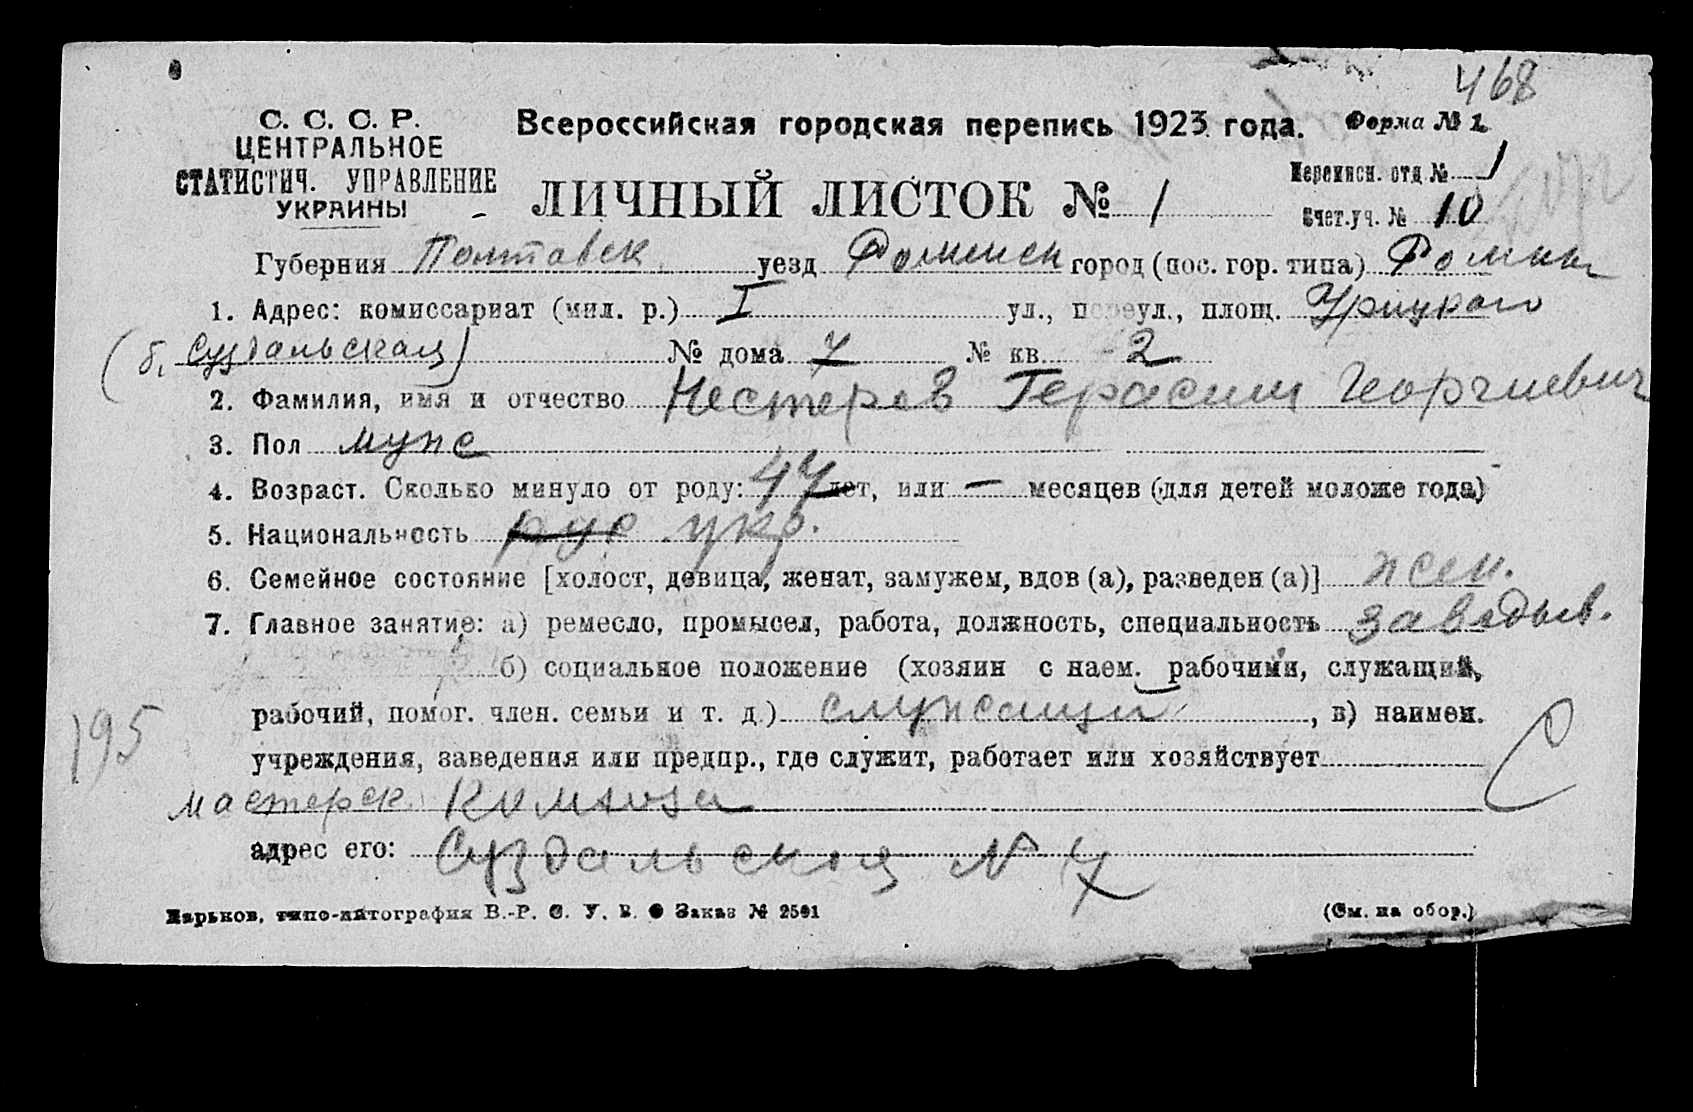 468
С. С. С. Р.
ЦЕНТРАЛЬНОЕ
СТАТИСТИЧ. УПРАВЛЕНИЕ
УКРАИНЫ
Всероссийская городская перепись 1923 года.
Форма № 1
ЛИЧНЫЙ ЛИСТОК № 1
Переписн. отд № 1
Счет.уч. № 10
Губерния Полтавск уезд Роменск город (пос. гор. типа) Ромны
1. Адрес: комиссариат (мил. р.) I ул., переул., площ. Урицкого
(б. Суздальская) № дома 7 № кв. 2
2. Фамилия, имя и отчество Нестеров Герасим Георгиевич
3. Пол мужс
4. Возраст. Сколько минуло от роду: 47 лет, или — месяцев (для детей моложе года)
5. Национальность рус укр.
6. Семейное состояние [холост, девица, женат, замужем, вдов (а), разведен (а)] жен.
7. Главное занятие: а) ремесло, промысел, работа, должность, специальность заведыв.
б) социальное положение (хозяин с наем. рабочими, служащий,
рабочий, помог. член. семьи и т. д.) служащий, в) наимен.
195
С
учреждения, заведения или предпр., где служит, работает или хозяйствует
мастерск.
адрес его: Суздальская № 7
Харьков, типо-литография В.-Р. С. У. В. Заказ № 2501
(См. на обор.)